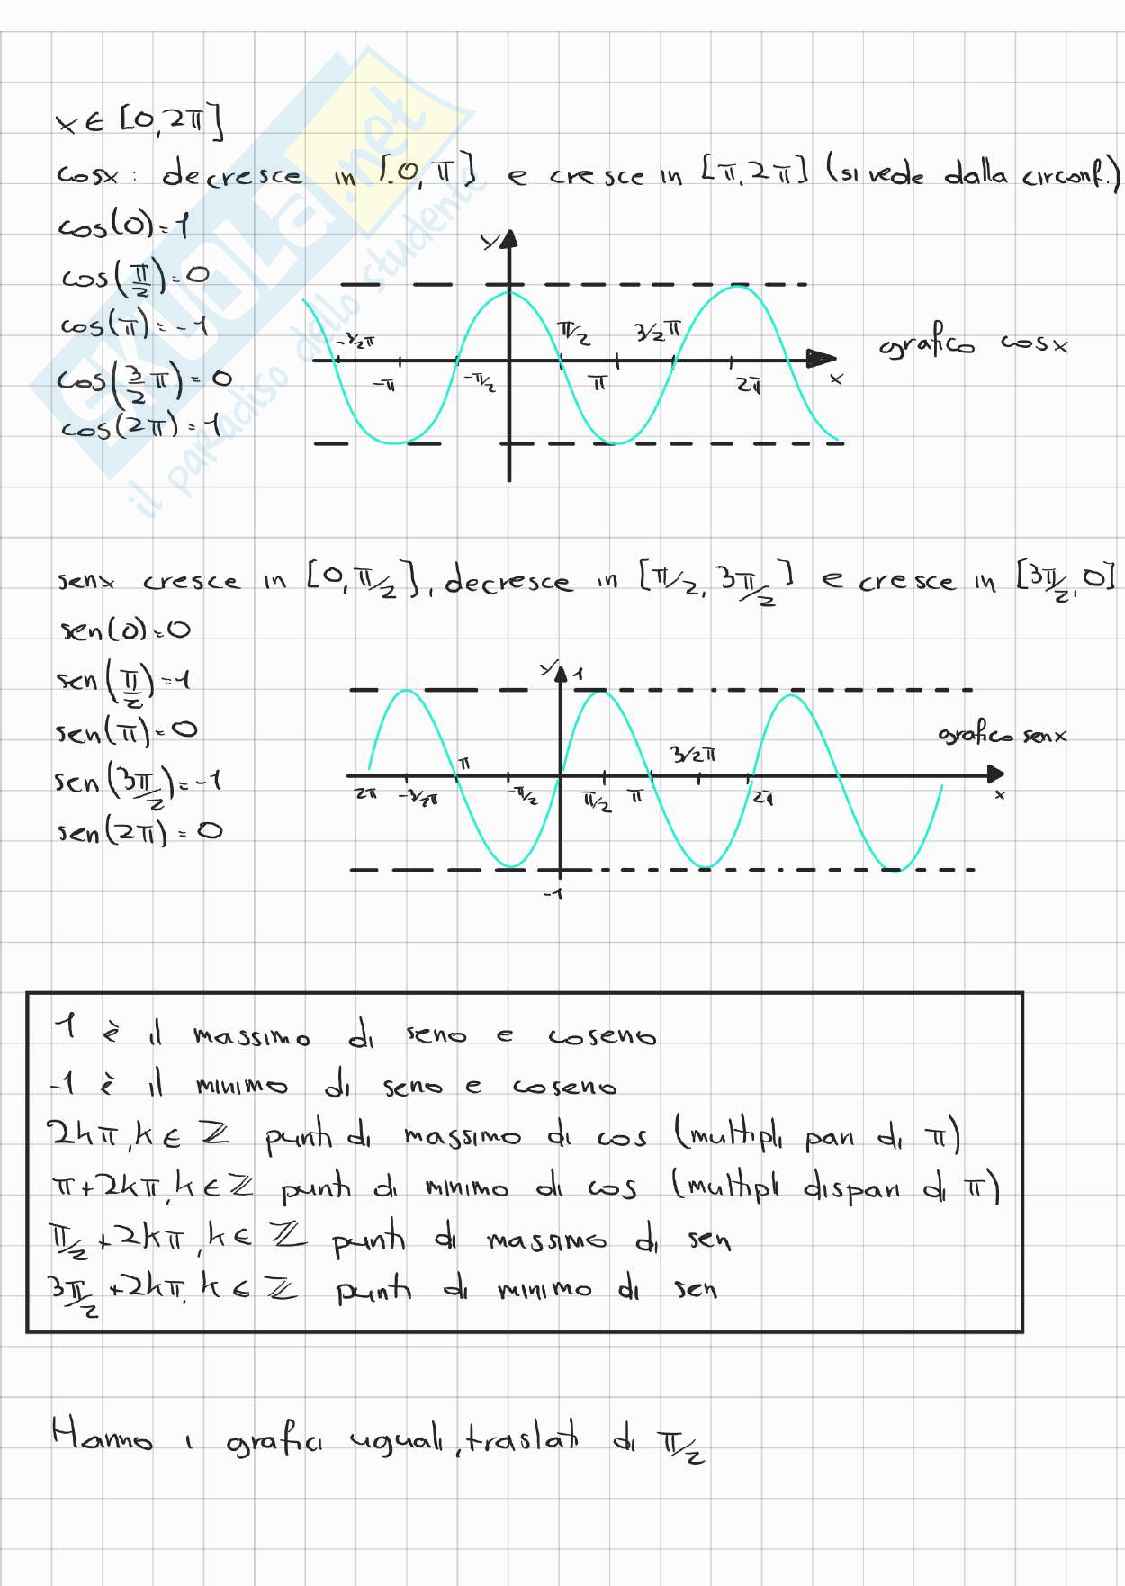 x ∈ [0,2π]
cosx : decresce in [0,π] e cresce in [π,2π] (si vede dalla circonf.)
cos(0)=1
cos(π/2)=0
cos(π)=-1
cos(3/2 π)=0
cos(2π)=1
y
-3/2π
-π
-π/2
π/2
π
3/2π
2π
x
grafico cosx
SKUOLA.net
il paradiso dello studente
senx cresce in [0,π/2], decresce in [π/2, 3π/2] e cresce in [3π/2,0]
sen(0)=0
sen(π/2)=1
sen(π)=0
sen(3π/2)=-1
sen(2π)=0
y
1
grafico senx
2π
-3/2π
π
-π/2
π/2
π
3/2π
2π
x
-1
1 è il massimo di seno e coseno
-1 è il minimo di seno e coseno
2kπ, k ∈ ℤ punti di massimo di cos (multipli pari di π)
π+2kπ, k ∈ ℤ punti di minimo di cos (multipli dispari di π)
π/2 +2kπ, k ∈ ℤ punti di massimo di sen
3π/2 +2kπ, k ∈ ℤ punti di minimo di sen
Hanno i grafici uguali, traslati di π/2